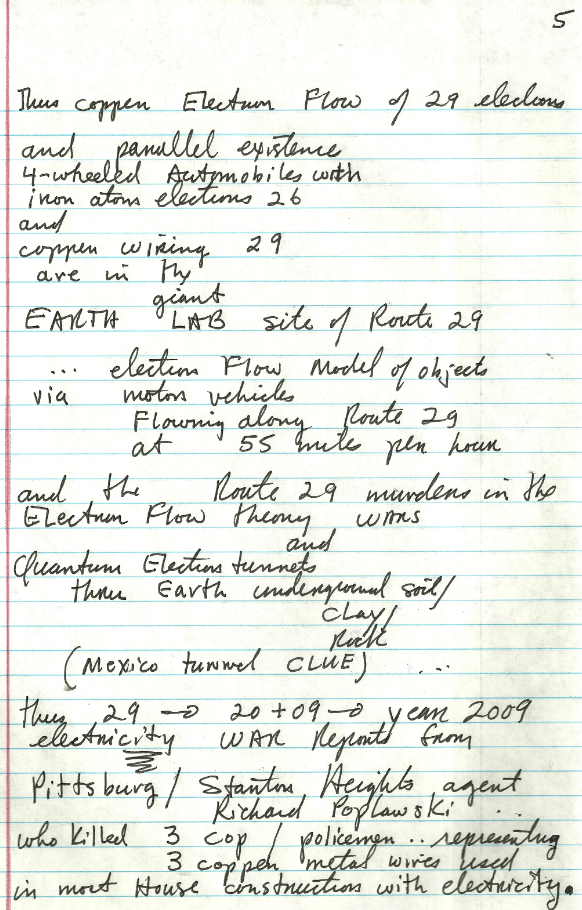 5
Thus coppen Electron Flow of 29 elections
and parallel existence
4-wheeled Automobiles with
iron atom elections 26
and
coppen wiring 29
are in the
giant
EARTH LAB site of Route 29
... election Flow Model of objects
via motors vehicles
Flowing along Route 29
at 55 miles per hour
and the Route 29 murders in the
Electron Flow theory WARS
and
Quantum Election tunnels
thru Earth underground soil/
CLAY/
Rock
(Mexico tunnel CLUE) ....
thus 29 → 20+09 → year 2009
electricity WAR Reports from
Pittsburg / Stanton Heights agent
Richard Poplawski ...
who killed 3 cop / policemen .. representing
3 coppen metal wires used
in most House construction with electricity.